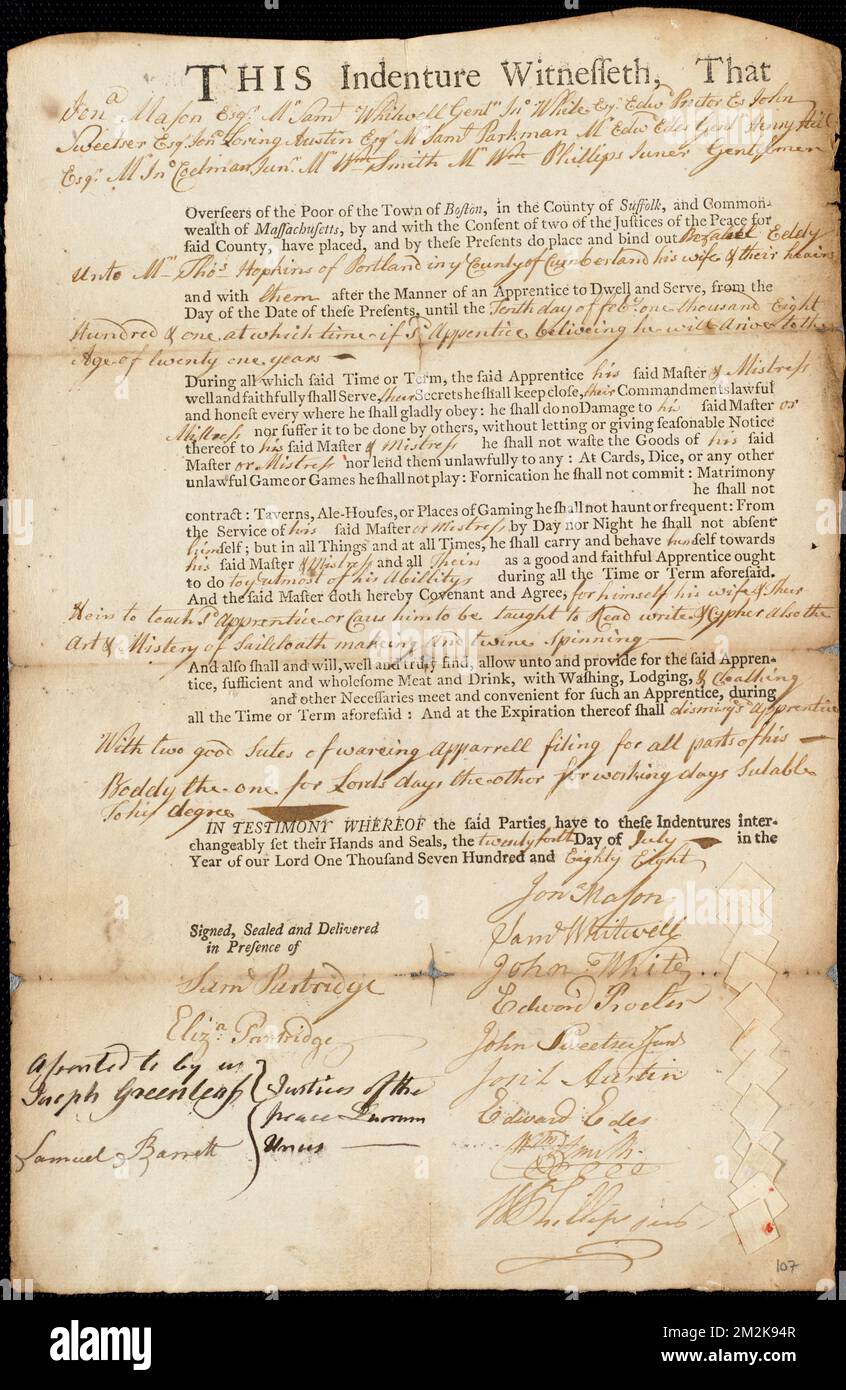 THIS Indenture Witnesseth, That
Jona Mason Esqr. Mr Saml Whitwell Gentn Jno White Esqr. Edwd Procter Es John
Sweetser Esqr. Jona Loring Austin Esqr Mr Saml Parkman Mr Edwd Edes Gent Henry Hill
Esqr. Mr Jno Codman Junr. Mr Wm Smith Mr Wm Phillips Juner Gentlemen
Overseers of the Poor of the Town of Boston, in the County of Suffolk, and Common-
wealth of Massachusetts, by and with the Consent of two of the Justices of the Peace for
said County, have placed, and by these Presents do place and bind out Bezaleel Eddy
unto Mr Thos Hopkins of Portland in ye County of Cumberland his wife & their heairs
and with them after the Manner of an Apprentice to Dwell and Serve, from the
Day of the Date of these Presents, until the Tenth day of feby. one thousand Eight
Hundred & one at which time if sd Apprentice beliveing he will Arive to the
Age of twenty one years
During all which said Time or Term, the said Apprentice his said Master & Mistress
well and faithfully shall Serve, their Secrets he shall keep close, their Commandments lawful
and honest every where he shall gladly obey: he shall do no Damage to his said Master or
Mistress nor suffer it to be done by others, without letting or giving seasonable Notice
thereof to his said Master & Mistress he shall not waste the Goods of his said
Master or Mistress nor lend them unlawfully to any: At Cards, Dice, or any other
unlawful Game or Games he shall not play: Fornication he shall not commit: Matrimony
he shall not
contract: Taverns, Ale-Houses, or Places of Gaming he shall not haunt or frequent: From
the Service of his said Master or Mistress by Day nor Night he shall not absent
himself; but in all Things and at all Times, he shall carry and behave himself towards
his said Master & Mistress and all Theirs as a good and faithful Apprentice ought
to do to ye utmost of his Abillitys during all the Time or Term aforesaid.
And the said Master doth hereby Covenant and Agree, for himself his wife & their
Heirs to teach sd Apprentice or Caus him to be taught to Read write & Cypher also the
Art & Mistery of Sailcloath making and twine Spinning
And also shall and will, well and truly find, allow unto and provide for the said Appren-
tice, sufficient and wholesome Meat and Drink, with Washing, Lodging, & Cloathing
and other Necessaries meet and convenient for such an Apprentice, during
all the Time or Term aforesaid: And at the Expiration thereof shall dismiss sd apprentice
With two good Sutes of wareing Apparrell fiting for all parts of his
Boddy the one for Lords days the other for working days Sutable
To his degree
IN TESTIMONY WHEREOF the said Parties have to these Indentures inter-
changeably set their Hands and Seals, the twenty forth Day of July in the
Year of our Lord One Thousand Seven Hundred and Eighty Eight
Signed, Sealed and Delivered
in Presence of
Saml Partridge
Eliza Partridge
Assented to by us
Joseph Greenleaf
Samuel Barrett
Justices of the
peace Quorum
Unus
Jona Mason
Saml Whitwell
John White
Edward Procter
John Sweetser Jun
Jon L Austin
Edward Edes
Wm Smith
W Phillips junr
107
alamy
Image ID: 2M2K94R
www.alamy.com